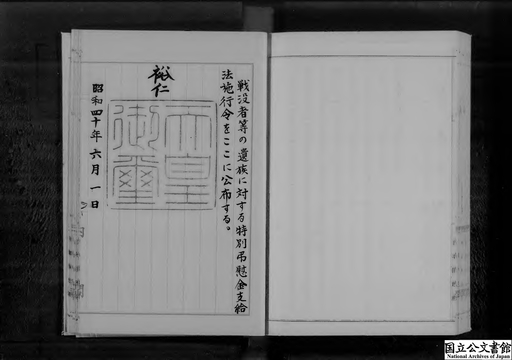 戦没者等の遺族に対する特別弔慰金支給
法施行令をここに公布する。
裕仁
天皇
御璽
昭和四十年六月一日
国立公文書館
National Archives of Japan